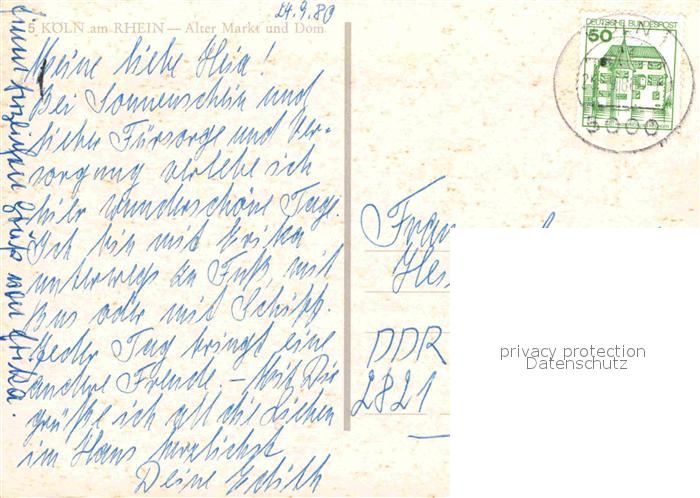 24.9.80
5 KÖLN am RHEIN — Alter Markt und Dom
Meine liebe Hia!
Bei Sonnenschein und
lieber Fürsorge und Ver-
sorgung verlebe ich
hier wunderschöne Tage.
Ich bin mit Erika
unterwegs zu Fuß, mit
Bus oder mit Schiff.
Jeder Tag bringt eine
andere Freude. – Mit Dir
grüße ich all die Lieben
im Haus herzlichst
Deine Edith
herzlichen Gruß von Erika.
DEUTSCHE BUNDESPOST
50
5000
Frau
DDR
2821
privacy protection
Datenschutz